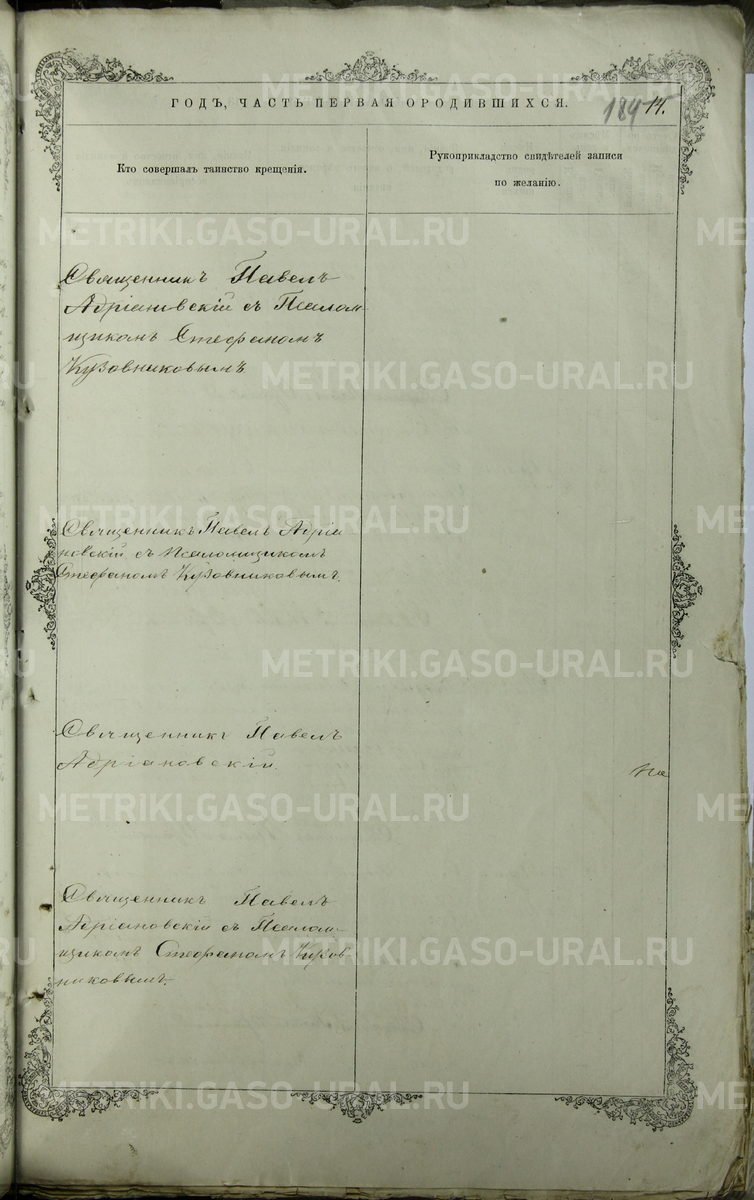 ГОДЪ, ЧАСТЬ ПЕРВАЯ О РОДИВШИХСЯ.
189 14.
Кто совершалъ таинство крещенія.
Рукоприкладство свидѣтелей записи
по желанію.
Священникъ Павелъ
Адріановскій съ Псалом
щикомъ Стефаномъ
Кузовниковымъ
Священникъ Павелъ Адріа
новскій съ Псаломщикомъ
Стефаномъ Кузовниковымъ.
Священникъ Павелъ
Адріановскій.
Священникъ Павелъ
Адріановскій съ Псалом-
щикомъ Стефаномъ Кузов
никовымъ.
METRIKI.GASO-URAL.RU